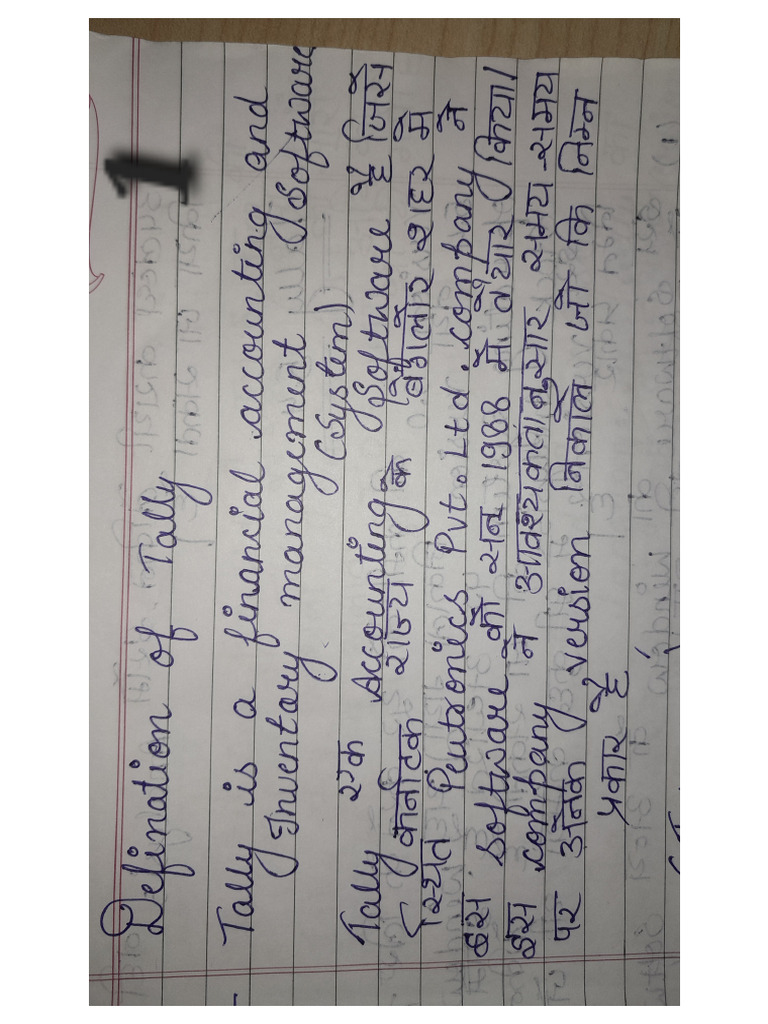 1
Defination of Tally
Tally is a financial accounting and
Inventory management Software
(System)
Tally एक Accounting Software है जिसे
कर्नाटक राज्य के बैंगलोर शहर में
स्थित Peutronics Pvt. Ltd. company ने
इस software को सन् 1988 में तैयार किया।
इस company ने आवश्यकतानुसार समय-समय
पर अनेक version निकाले जो कि निम्न
प्रकार है